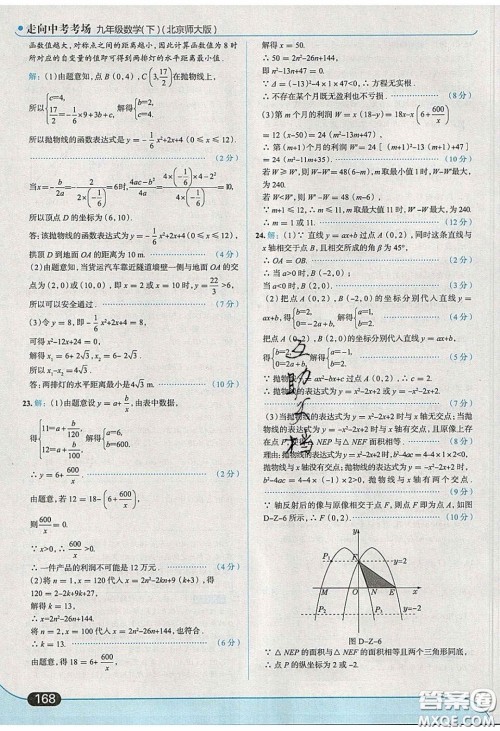 走向中考考场 九年级数学(下)(北京师大版)
函数值越大,对称点之间的距离越小,因此计算函数值为8时
所对应的自变量的值即可得到两排灯的水平距离最小值.
解:(1)由题意知,点B(0,4),C(3,17/2)在抛物线上,
所以{c=4, 17/2=-1/6×9+3b+c, 解得{b=2, c=4.
所以抛物线的函数表达式是y=-1/6x²+2x+4(0≤x≤12).
(2分)
当x=-b/2a=-2/(2×(-1/6))=6时,(4ac-b²)/4a=(4×(-1/6)×4-2²)/(4×(-1/6))=10,
所以顶点D的坐标为(6,10).
答:该抛物线的函数表达式为y=-1/6x²+2x+4(0≤x≤12),
拱顶D到地面OA的距离为10 m. (4分)
(2)由题意知,当货运汽车靠近隧道墙壁一侧与地面OA的
交点为(2,0)或(10,0),即x=2或x=10时,y=22/3>6,
所以可以安全通过. (7分)
(3)令y=8,即-1/6x²+2x+4=8,
可得x²-12x+24=0.
解得x₁=6+2√3,x₂=6-2√3.
则x₁-x₂=4√3.
答:两排灯的水平距离最小是4√3 m. (10分)
23.解:(1)由题意设y=a+b/x,由表中数据,
得{11=a+b/120, 12=a+b/100, 解得{a=6, b=600.
∴y=6+600/x. (2分)
由题意,若12=18-(6+600/x),
则600/x=0.
∵x>0,∴600/x>0.
∴一件产品的利润不可能是12万元. (4分)
(2)将n=1,x=120代入x=2n²-2kn+9(k+3),得120
=2-2k+9k+27,
解得k=13,
∴x=2n²-26n+144.
将n=2,x=100代入x=2n²-26n+144,也符合.
∴k=13. (6分)
由题意,得18=6+600/x,
解得x=50.
∴50=2n²-26n+144,
即n²-13n+47=0.
∵Δ=(-13)²-4×1×47<0,∴方程无实根.
∴不存在某个月既无盈利也不亏损. (8分)
(3)第m个月的利润W=x(18-y)=18x-x(6+600/x)
=12(x-50)=24(m²-13m+47),
∴第(m+1)个月的利润W′=24[(m+1)²-13(m+1)+47]
=24(m²-11m+35). (10分)
若W≥W′,W-W′=48(6-m),m取最小值1时,W-W′最大,
为240.
若W<W′,W′-W=48(m-6),m+1≤12,m取最大值11时,
W′-W最大,为240.
∴m=1或11. (12分)
24.解:(1)∵直线y=ax+b过点A(0,2),同时这条直线与
x轴相交于点B,且相交所成的角β为45°,
∴OA=OB.
∴当a>0时,B(-2,0);
当a<0时,B(2,0). (2分)
(2)把点A(0,2),B(-2,0)的坐标分别代入直线y=
ax+b,得{b=2, 0=-2a+b, 解得{a=1, b=2. (4分)
把点A(0,2),B(2,0)的坐标分别代入直线y=ax+b,
得{b=2, 0=2a+b, 解得{a=-1, b=2.
互助文档
(3)当抛物线的表达式为y=x²-2x+2时与x轴无交点;当
抛物线的表达式为y=-x²-2x+2时与x轴有交点且原像上存
(8分)
b²-4ac=4-4×(-1)×2>0,此抛物线与x轴有两个交点.
(9分)
∵x轴反射后的像与原像相交于点F,则点F即为点A,如图
D-Z-6所示,∴F(0,2). (10分)
y
P₁ F P₂ y=2
O N E x
M P₃ P₄ y=-2
图D-Z-6
∵△NEP与△NEF的面积相等且这两个三角形同底,
∴点P的纵坐标为2或-2.
168
答案圈
MXQE.COM